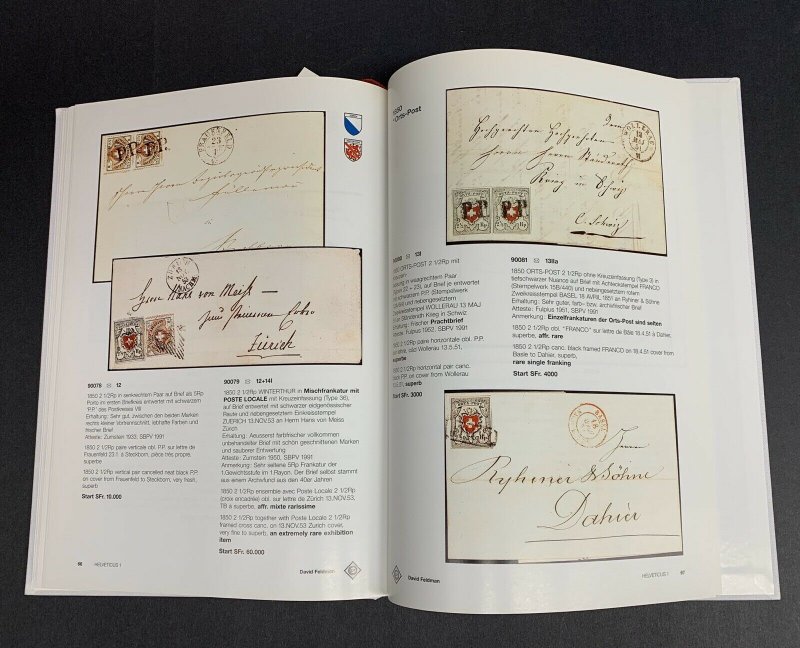 FRAUENFELD
23
P.P. P.P.
Zürich
90078 ✉ 12
1850 2 1/2Rp in senkrechtem Paar auf Brief als 5Rp
Porto im ersten Briefkreis entwertet mit schwarzem
"P.P." des Postkreises VIII
Erhaltung: Sehr gut, zwischen den beiden Marken
rechts kleiner Voreinschnitt, lebhafte Farben und
frischer Brief
Atteste: Zumstein 1933, SBPV 1991
1850 2 1/2Rp paire verticale obl. P.P. sur lettre de
Frauenfeld 23.1 à Steckborn, pièce très propre,
superbe
1850 2 1/2Rp vertical pair cancelled neat black P.P.
on cover from Frauenfeld to Steckborn, very fresh,
superb
Start SFr. 10.000
90079 ✉ 12+14I
1850 2 1/2Rp WINTERTHUR in Mischfrankatur mit
POSTE LOCALE mit Kreuzeinfassung (Type 36),
auf Brief entwertet mit schwarzer eidgenössischer
Raute und nebengesetztem Einkreisstempel
ZUERICH 13.NOV.53 an Herrn Hans von Meiss
Zürich
Erhaltung: Ausserst farbfrischer vollkommen
unbehandelter Brief mit schön geschnittenen Marken
und sauberer Entwertung
Atteste: Zumstein 1950, SBPV 1991
Anmerkung: Sehr seltene 5Rp Frankatur der
1.Gewichtsstufe im 1.Rayon. Der Brief selbst stammt
aus einem Archivfund aus den 40er Jahren
1850 2 1/2Rp ensemble avec Poste Locale 2 1/2Rp
(croix encadrée) obl. sur lettre de Zürich 13.NOV.53,
TB à superbe, affr. mixte rarissime
1850 2 1/2Rp together with Poste Locale 2 1/2Rp
framed cross canc. on 13.NOV.53 Zurich cover,
very fine to superb, an extremely rare exhibition
item
Start SFr. 60.000
66 HELVETICUS 1
David Feldman
1850
"Orts-Post
WOLLERAU
13
MAI
P.P. P.P.
C. Schwiz
13I
1850 ORTS-POST 2 1/2Rp mit
in waagrechtem Paar
22 + 23), auf Brief je entwertet
schwarzem P.P. (Stempelwerk
und nebengesetztem
Zweikreisstempel WOLLERAU 13 MAJ
Krieg in Schwyz
frischer Prachtbrief
Fulpius 1952, SBPV 1991
paire horizontale obl. P.P.
Wollerau 13.5.51,
1850 2 1/2Rp horizontal pair canc.
P.P. on cover from Wollerau
superb
Start SFr. 3000
90081 ✉ 13IIa
1850 ORTS-POST 2 1/2Rp ohne Kreuzeinfassung (Type 3) in
tiefschwarzer Nuance auf Brief mit Achteckstempel FRANCO
(Stempelwerk 15B/440) und nebengesetztem rotem
Zweikreisstempel BASEL, 18 AVRIL 1851 an Ryhiner & Söhne
Erhaltung: Sehr guter, farb- bzw. archivfrischer Brief
Atteste: Fulpius 1951, SBPV 1991
Anmerkung: Einzelfrankaturen der Orts-Post sind selten
1850 2 1/2Rp obl. "FRANCO" sur lettre de Bâle 18.4.51 à Dahier,
superb, affr. rare
1850 2 1/2Rp canc. black framed FRANCO on 18.4.51 cover from
Basle to Dahier, superb,
rare single franking
Start SFr. 4000
Herren
Ryhiner & Söhne
Dahier
David Feldman
HELVETICUS 1 67